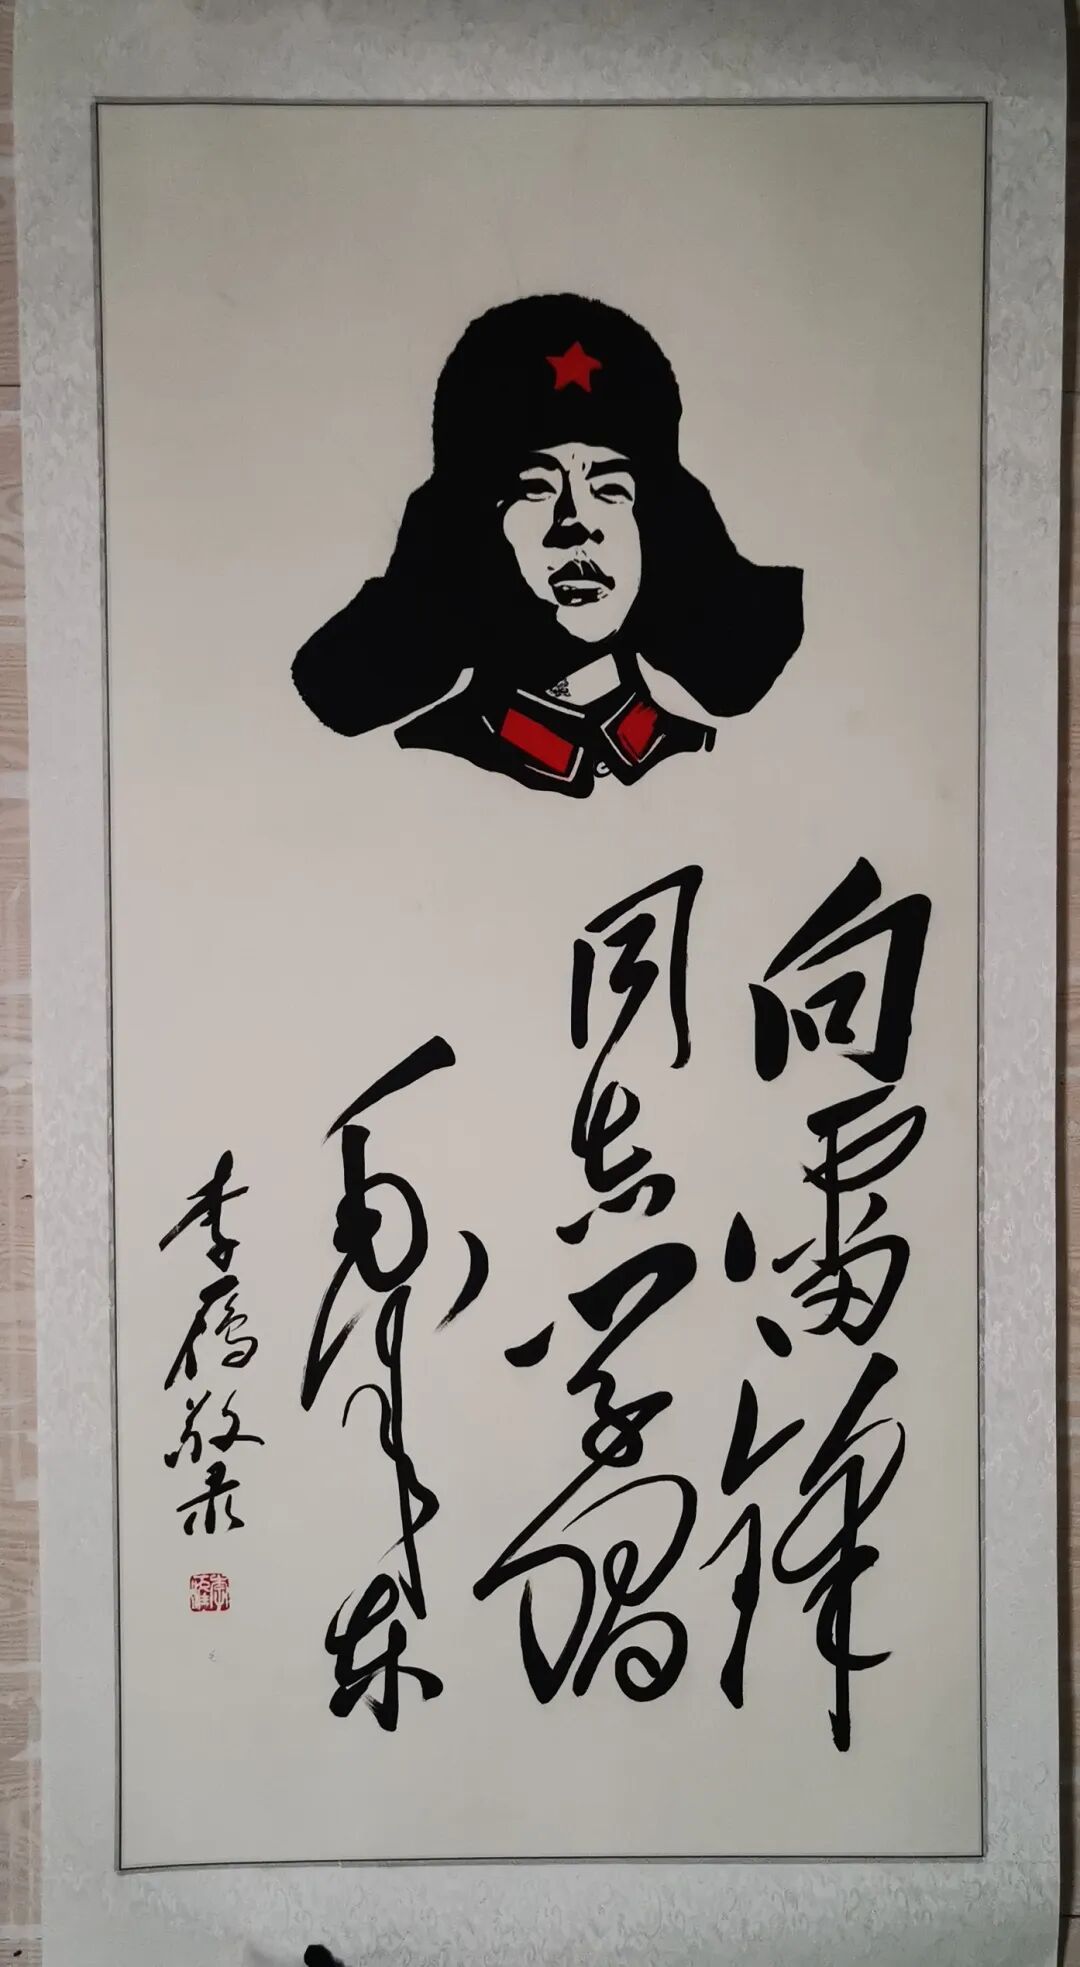 向雷锋
同志学习
毛泽东
李雁敬录